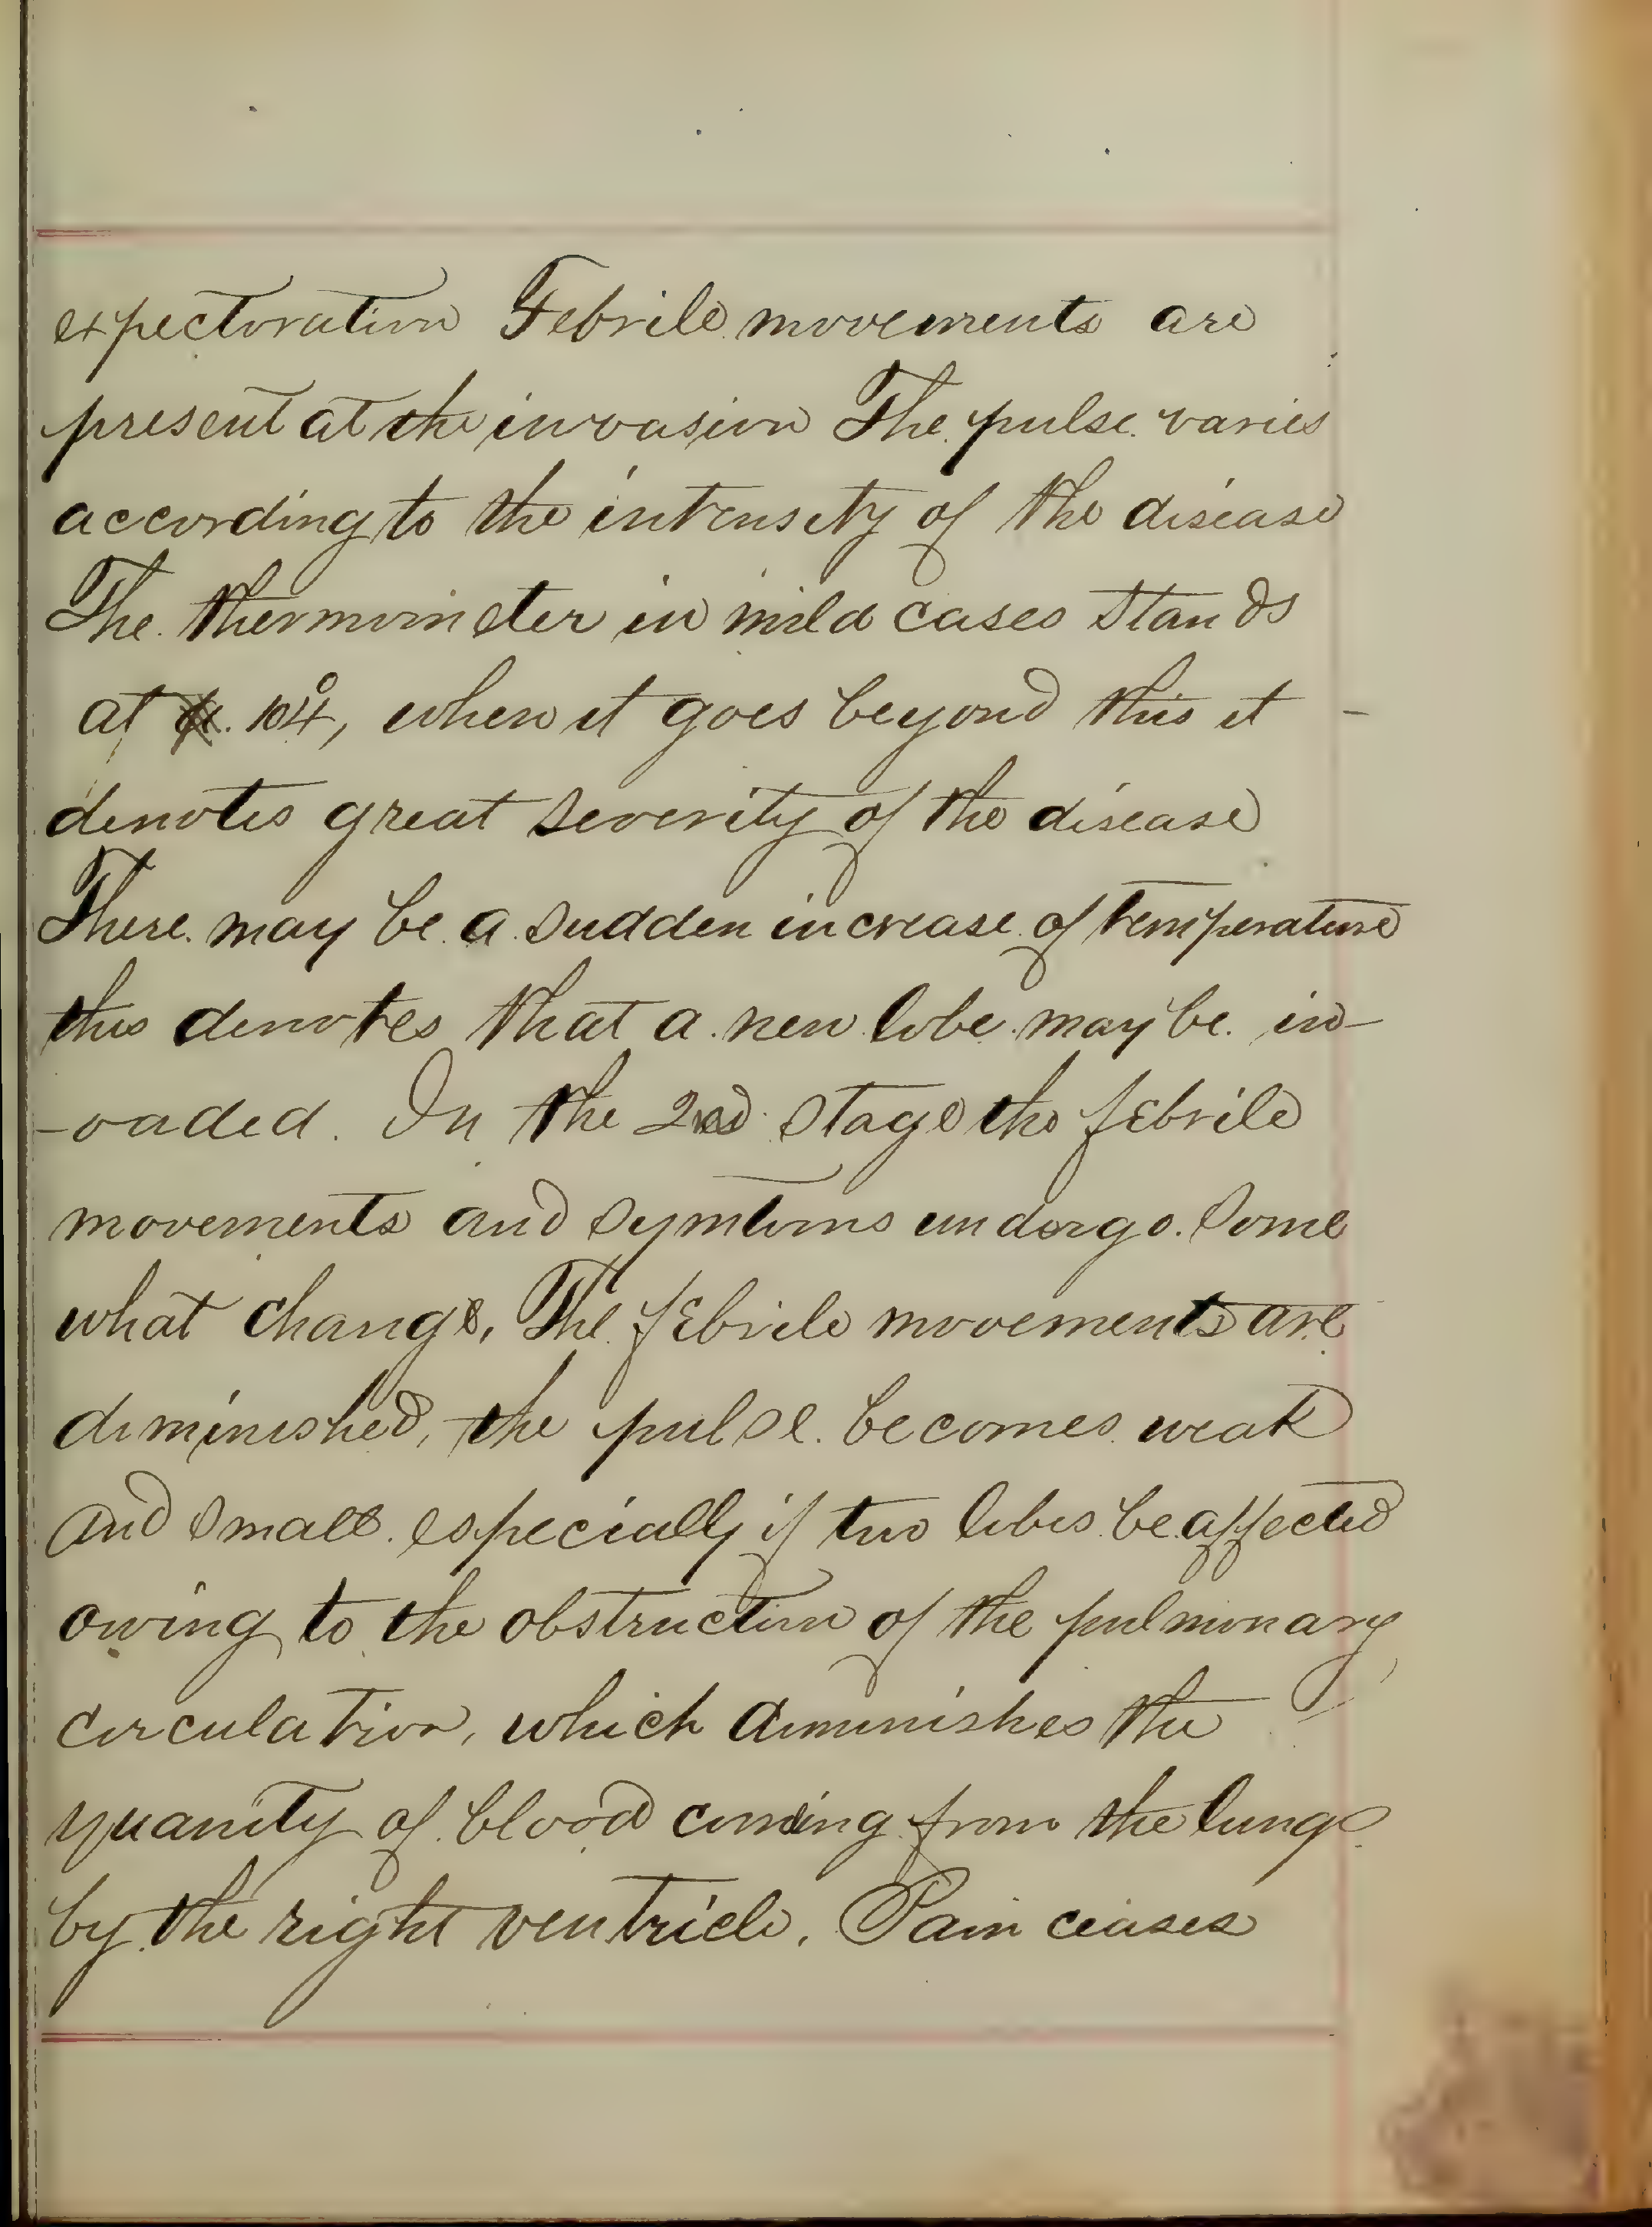 expectoration Febrile movements are
present at the invasion The pulse varies
according to the intensity of the disease
The thermometer in mild cases stands
at 104°, when it goes beyond this it -
denotes great severity of the disease
There may be a sudden increase of temperature
this denotes that a new lobe may be in-
-vaded. In the 2nd stage the febrile
movements and symtoms undergo some
what change, The febrile movements are
diminished, the pulse becomes weak
and small especially if two lobes be affected
owing to the obstruction of the pulmonary
circulation, which diminishes the
quanity of blood coming from the lungs
by the right ventricle. Pain ceases